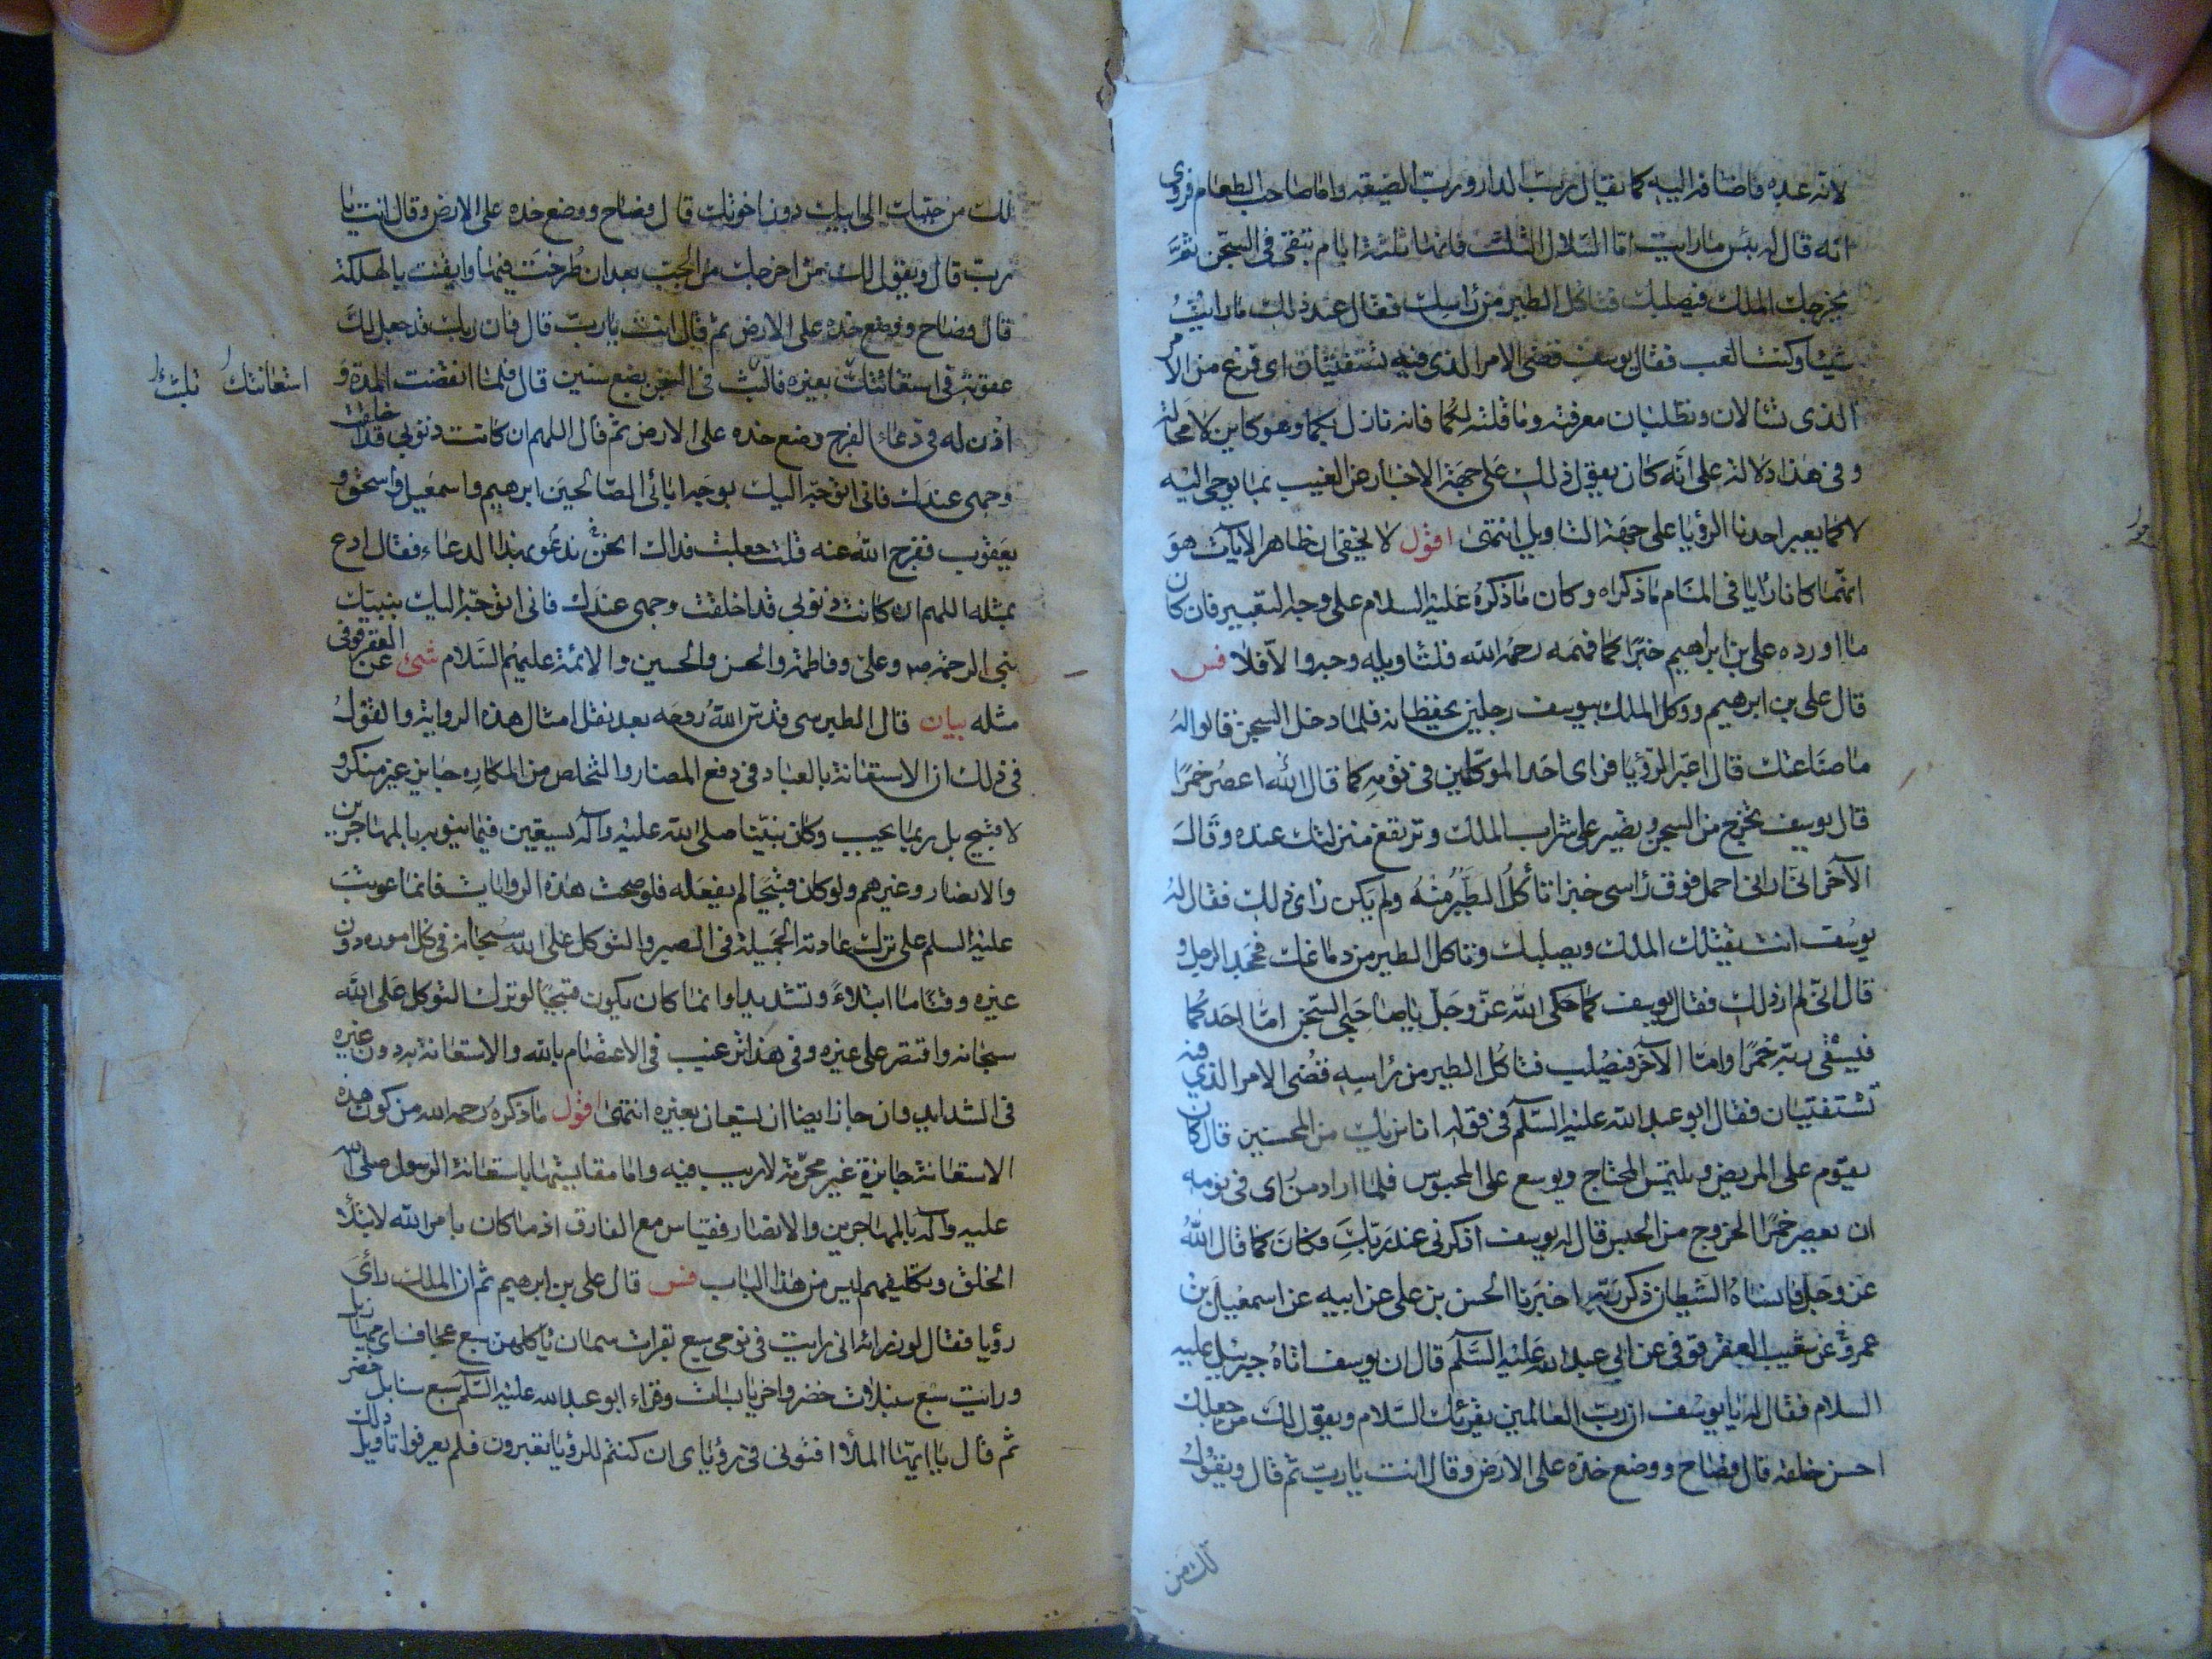 لانه عبده فاضافه اليه كما يقال رب الدار ورب الضيعة واما صاحب الطعام فروى
انه قال له بئس ما رايت اما السلال الثلث فانها ثلثة ايام تبقى في السجن ثم
يخرجك الملك فيصلبك فتاكل الطير من راسك فقال عند ذلك ما رايت
شيئا وكنت العب فقال يوسف قضى الامر الذي فيه تستفتيان اى فرغ من الامر
الذى تسالان وتطلبان معرفته وما قلته لكما فانه نازل بكما وهو كاين لا محالة
وفي هذا دلالة على انه كان يقول ذلك على جهة الاخبار عن الغيب بما يوحى اليه
لا كما يعبر احدنا الرؤيا على جهة التاويل انتهى اقول لا يخفى ان ظاهر الآيات هو
انهما كانا رايا في المنام ما ذكراه وكان ما ذكره عليه السلام على وجه التعبير فان كان
ما اورده على بن ابرهيم خبرا كما فهمه رحمه الله فلتاويله وجه والا فلا فس
قال على بن ابرهيم ووكل الملك بيوسف رجلين يحفظانه فلما دخل السجن قالوا له
ما صناعتك قال اعبر الرؤيا فراى احد الموكلين في نومه كما قال الله اعصر خمرا
قال يوسف تخرج من السجن وتصير على شراب الملك وترتفع منزلتك عنده وقال
الآخر انى ارانى احمل فوق راسى خبزا تأكل الطير منه ولم يكن راى ذلك فقال له
يوسف انت يقتلك الملك ويصلبك وتاكل الطير من دماغك فجحد الرجل و
قال انى لم ار ذلك فقال يوسف كما حكى الله عز وجل يا صاحبى السجن اما احدكما
فيسقى ربه خمرا واما الآخر فيصلب فتاكل الطير من راسه قضى الامر الذي فيه
تستفتيان فقال ابو عبد الله عليه السلم في قوله انا نريك من المحسنين قال كان
يقوم على المريض ويلتمس المحتاج ويوسع على المحبوس فلما اراد من راى في نومه
ان يعصر خمرا الخروج من الحبس قال له يوسف اذكرنى عند ربك فكان كما قال الله
عز وجل فانساه الشيطان ذكر ربه اخبرنا الحسن بن على عن ابيه عن اسمعيل بن
عمر عن شعيب العقرقوفى عن ابى عبد الله عليه السلم قال ان يوسف اتاه جبرئيل عليه
السلام فقال له يا يوسف ان رب العالمين يقرئك السلام ويقول لك من جعلك
احسن خلقه قال فصاح ووضع خده على الارض وقال انت يا رب ثم قال ويقول
لك من
لك من حببك الى ابيك دون اخوتك قال فصاح ووضع خده على الارض وقال انت يا
رب قال ويقول لك من اخرجك من الجب بعد ان طرحت فيها وايقنت بالهلكة
قال فصاح ووضع خده على الارض ثم قال انت يا رب قال فان ربك قد جعل لك
عقوبة في استغاثتك بغيره فالبث في السجن بضع سنين قال فلما انقضت المدة و
استعانتك
اذن له في دعاء الفرج وضع خده على الارض ثم قال اللهم ان كانت ذنوبى قد اخلقت
وجهى عندك فانى اتوجه اليك بوجه ابائى الصالحين ابرهيم واسمعيل واسحق و
يعقوب ففرج الله عنه قلت جعلت فداك انحن ندعو بهذا الدعاء فقال ادع
بمثله اللهم ان كانت ذنوبى قد اخلقت وجهى عندك فانى اتوجه اليك بنبيك
نبى الرحمة ص وعلى وفاطمة والحسن والحسين والائمة عليهم السلام شى عن العقرقوفى
مثله بيان قال الطبرسى قدس الله روحه بعد نقل امثال هذه الرواية والقول
في ذلك ان الاستعانة بالعباد في دفع المضار والتخلص من المكاره جايز غير منكر و
لا قبيح بل ربما يجب وكان نبينا صلى الله عليه وآله يستعين فيما ينوبه بالمهاجرين
والانصار وغيرهم ولو كان قبيحا لم يفعله فلو صحت هذه الروايات فانما عوتب
عليه السلم على ترك عادته الجميلة في الصبر والتوكل على الله سبحانه في كل اموره دون
غيره وقتا ما ابتلاء وتشديدا وانما كان يكون قبيحا لو ترك التوكل على الله
سبحانه واقتصر على غيره وفي هذا ترغيب في الاعتصام بالله والاستعانة به دون غيره
في الشدايد وان جاز ايضا ان يستعان بغيره انتهى اقول ما ذكره رحمه الله من كون هذه
الاستعانة جايزة غير محرمة لا ريب فيه واما مقايستها باستعانة الرسول صلى الله
عليه وآله بالمهاجرين والانصار فقياس مع الفارق اذ ما كان بامر الله لابتلاء
الخلق وتكليفهم ليس من هذا الباب فس قال على بن ابرهيم ثم ان الملك رأى
رؤيا فقال لوزرائه انى رايت في نومى سبع بقرات سمان ياكلهن سبع عجاف اى مهازيل
ورايت سبع سنبلات خضر واخر يابسات وقراء ابو عبد الله عليه السلم سبع سنابل خضر
ثم قال يا ايها الملأ افتونى في رؤياى ان كنتم للرؤيا تعبرون فلم يعرفوا تاويل ذلك